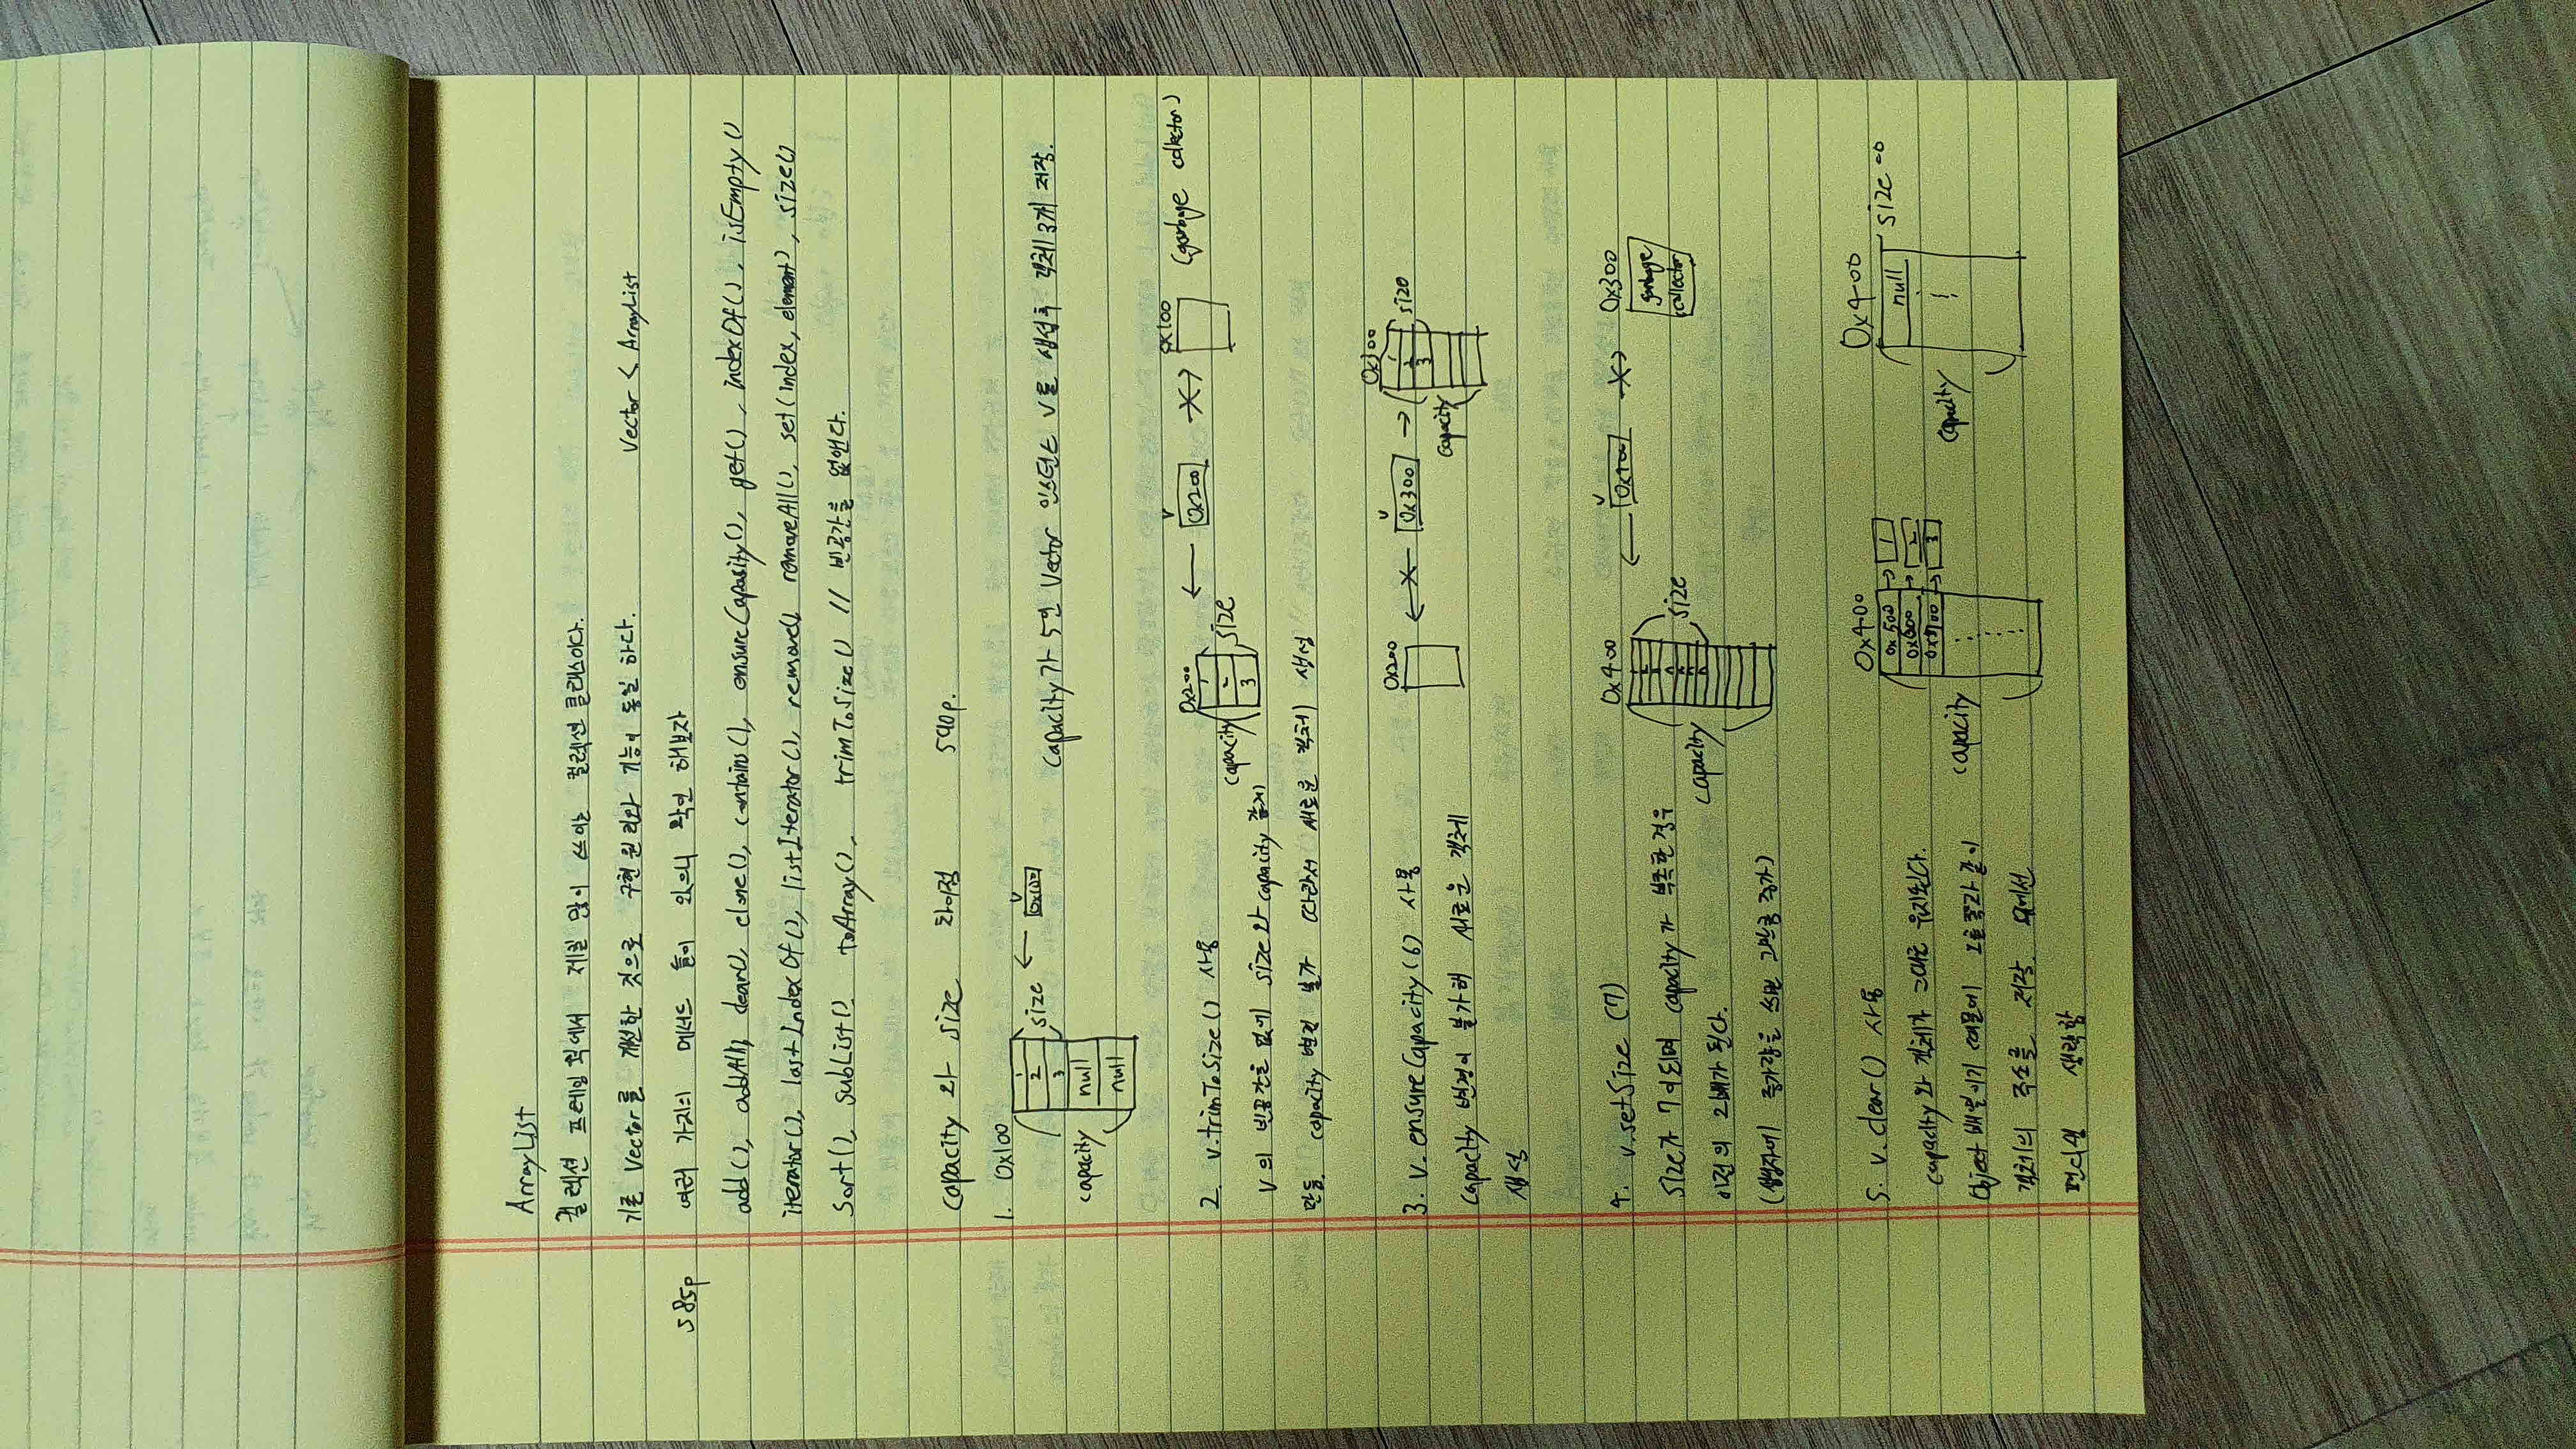 ArrayList
컬렉션 프레임 웍에서 제일 많이 쓰이는 컬렉션 클래스이다.
기존 Vector를 개선한 것으로 구현 원리와 기능이 동일 하다. Vector < ArrayList
585p 여러 가지의 메서드 들이 있으니 확인 해보자
add(), addAll(), clear(), clone(), contains(), ensureCapasity(), get(), indexOf(), isEmpty()
iterator(), lastIndexOf(), listIterator(), remove(), removeAll(), set(index, element), size()
Sort(), subList(), toArray(), trimToSize() // 빈공간을 없앤다.
capacity 와 size 차이점 590p.
1. 0x100
1
2
3
null
null
size
capacity
v
0x100
capacity가 5인 Vector 인스턴스 v를 생성후 객체 3개 저장.
2. v.trimToSize() 사용
v의 빈공간을 없애 size와 capacity 같게
만듬. capacity 변경 불가 따라서 새로운 객체 생성
0x200
1
2
3
capacity
size
v
0x200
0x100
(garbage collector)
3. v.ensureCapacity(6) 사용
capacity 변경이 불가해 새로운 객체
생성
0x200
v
0x300
0x300
1
2
3
size
capacity
4. v.setSize (7)
size가 7이 되며 capacity가 부족한 경우
이전의 2배가 된다.
(생성자에 증가량을 쓰면 그만큼 증가)
0x400
capacity
size
v
0x400
0x300
garbage
collector
5. v.clear() 사용
capacity와 객체가 그대로 유지된다.
Object 배열이기 때문에 오른쪽과 같이
객체의 주소를 저장. 위에선
편의상 생략함
0x400
0x500 → 1
0x600 → 2
0x700 → 3
capacity
0x400
null
size = 0
capacity